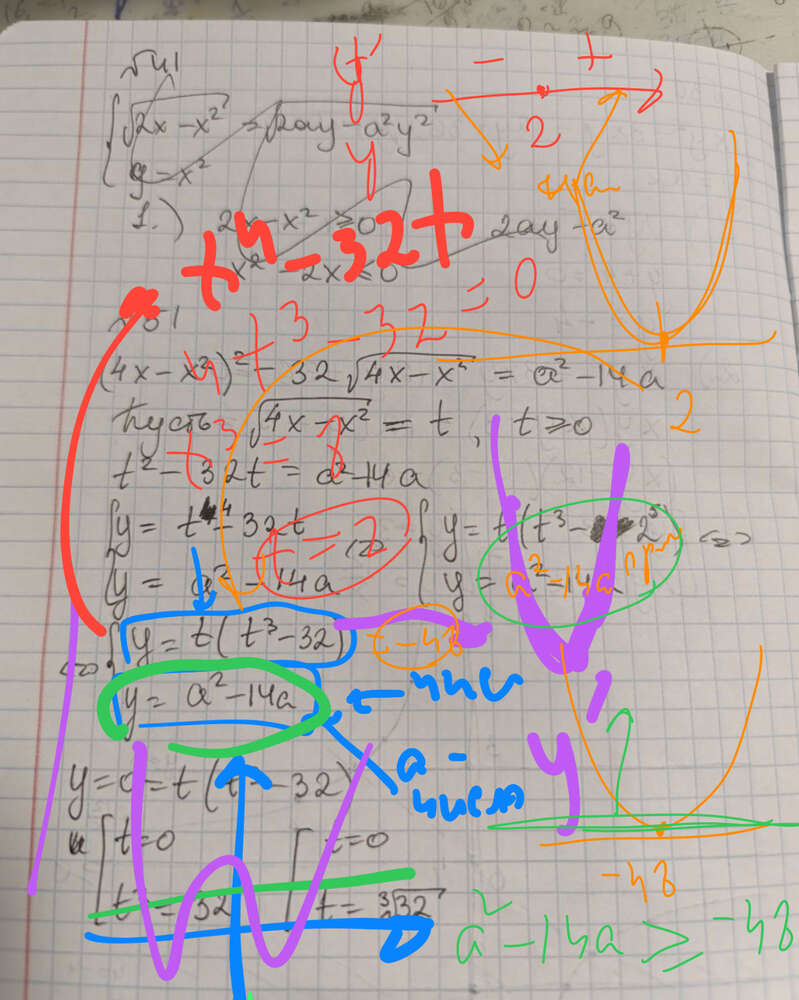 √41
√2x − x² = √2ay − a²y²
y − x²
1.) 2x − x² ≥ 0 2ay − a²
x² − 2x ≤ 0
y'
y
− +
2
t⁴ − 32t
4t³ − 32 = 0
t³ = 8
t = 2
√51
(4x − x²)² − 32√4x − x² = a² − 14a
Пусть √4x − x² = t, t ≥ 0
t² − 32t = a² − 14a
y = t⁴ − 32t
y = a² − 14a
<=>
y = t(t³ − 2⁵)
y = a² − 14a
<=>
2
<=>
y = t(t³ − 32)
−48
y = a² − 14a
a −
числа
y'
y = 0 = t(t³ − 32)
t = 0
t³ = 32
t = 0
t = ³√32
−48
a² − 14a ≥ −48